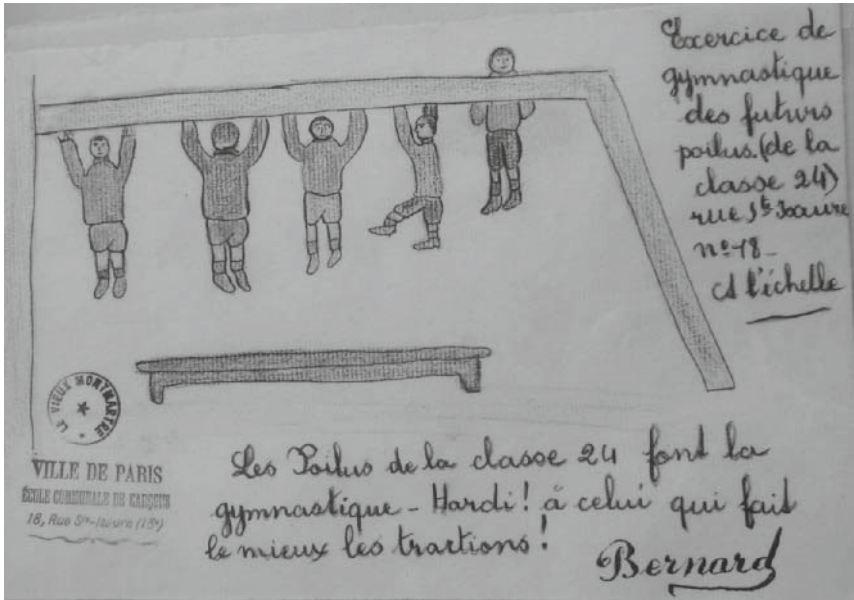 Exercice de
gymnastique
des futurs
poilus. (de la
classe 24)
rue Ste Isaure
no 18 -
A l'échelle
LE VIEUX MONTMARTRE
VILLE DE PARIS
ÉCOLE COMMUNALE DE GARÇONS
18, Rue Ste-Isaure (18e)
Les Poilus de la classe 24 font la
gymnastique - Hardi! à celui qui fait
le mieux les tractions!
Bernard